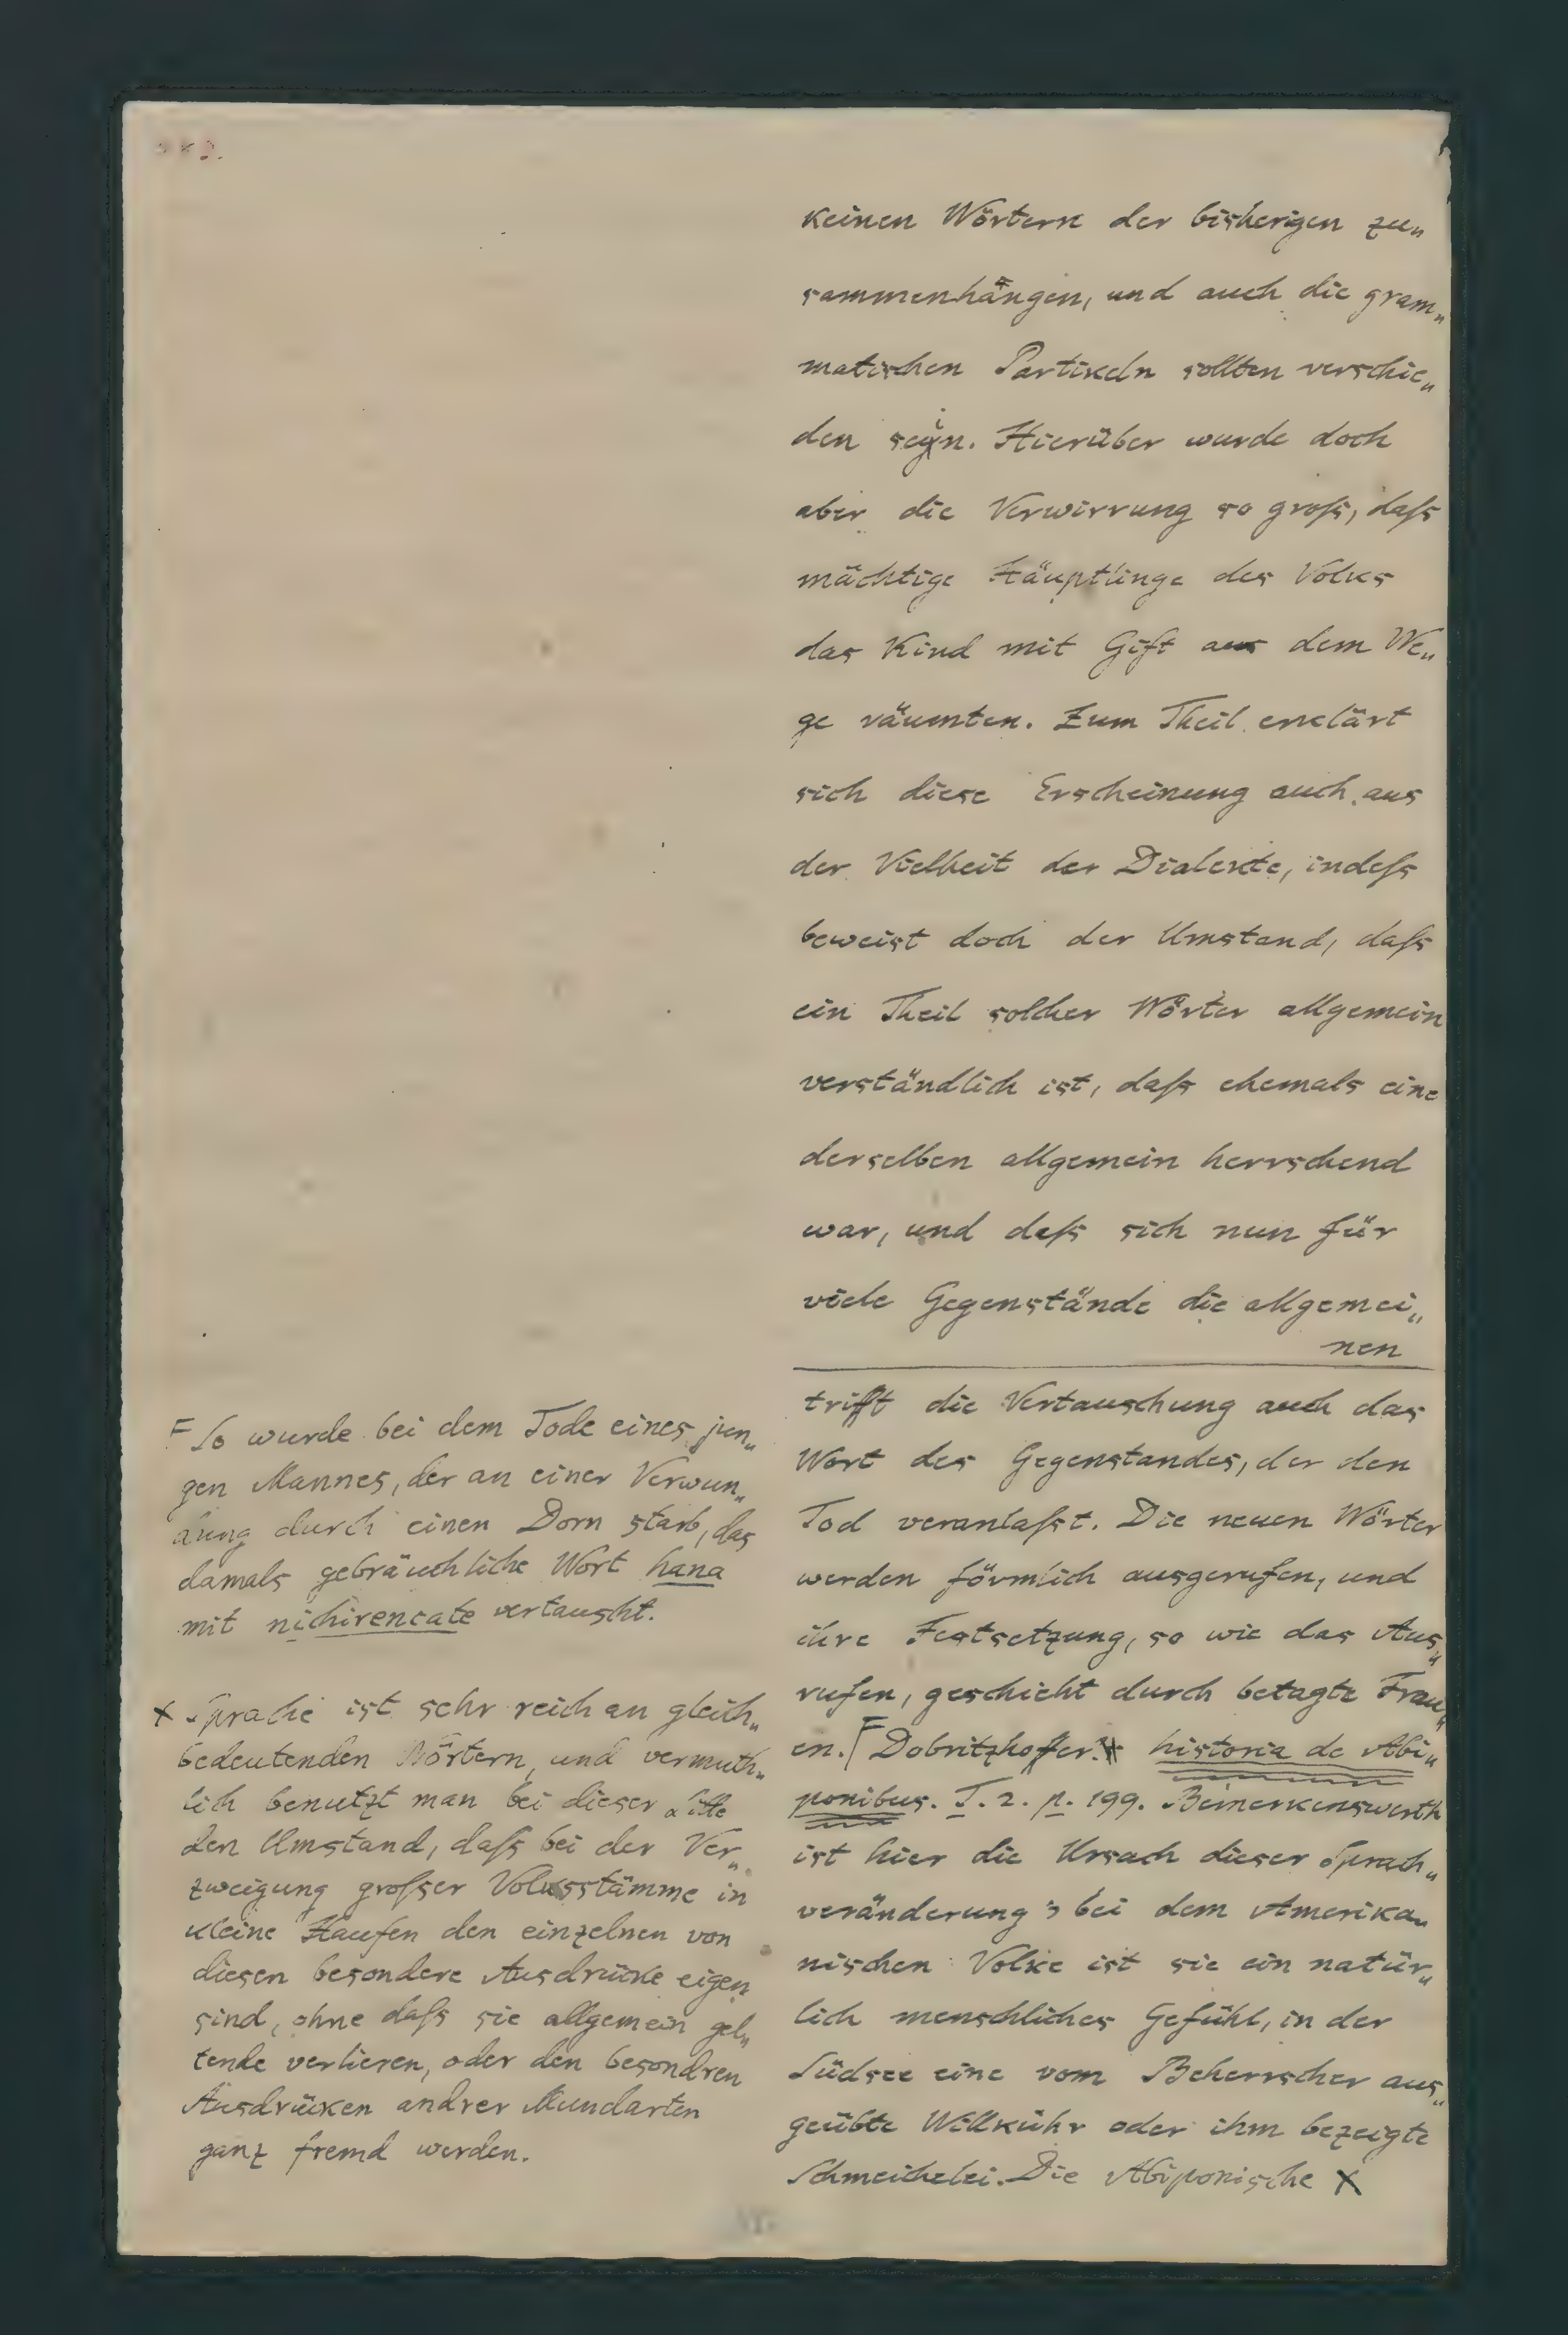 keinen Wörtern der bisherigen zu„
sammenhängen, und auch die gram„
matischen Partikeln sollten verschie„
den sein. Hierüber wurde doch
aber die Verwirrung so groſs, daſs
mächtige Häuptlinge des Volks
das Kind mit Gift aus dem We„
ge räumten. Zum Theil erklärt
sich diese Erscheinung auch aus
der Vielheit der Dialekte, indeſs
beweist doch der Umstand, daſs
ein Theil solcher Wörter allgemein
verständlich ist, daſs ehemals eine
derselben allgemein herrschend
war, und daſs sich nun für
viele Gegenstände die allgemei„
nen
trifft die Vertauschung auch das
Wort des Gegenstandes, der den
Tod veranlaſst. Die neuen Wörter
werden förmlich ausgerufen, und
ihre Festsetzung, so wie das Aus„
rufen, geschieht durch betagte Frau„
en. Γ Dobritzhoffer. historia de Abi„
ponibus. T. 2. p. 199. Bemerkenswerth
ist hier die Ursach dieser Sprach„
veränderung; bei dem Amerika„
nischen Volke ist sie ein natür„
lich menschliches Gefühl, in der
Südsee eine vom Beherrscher aus„
geübte Willkühr oder ihm bezeigte
Schmeichelei. Die Abiponische X
F So wurde bei dem Tode eines jun„
gen Mannes, der an einer Verwun„
dung durch einen Dorn starb, das
damals gebräuchliche Wort hana
mit nichirencate vertauscht.
X Sprache ist sehr reich an gleich„
bedeutenden Wörtern, und vermuth„
lich benutzt man bei dieser Sitte
den Umstand, daſs bei der Ver„
zweigung groſser Volksstämme in
kleine Haufen den einzelnen von
diesen besondere Ausdrücke eigen
sind, ohne daſs sie allgemein gel„
tende verlieren, oder den besondren
Ausdrücken andrer Mundarten
ganz fremd werden.